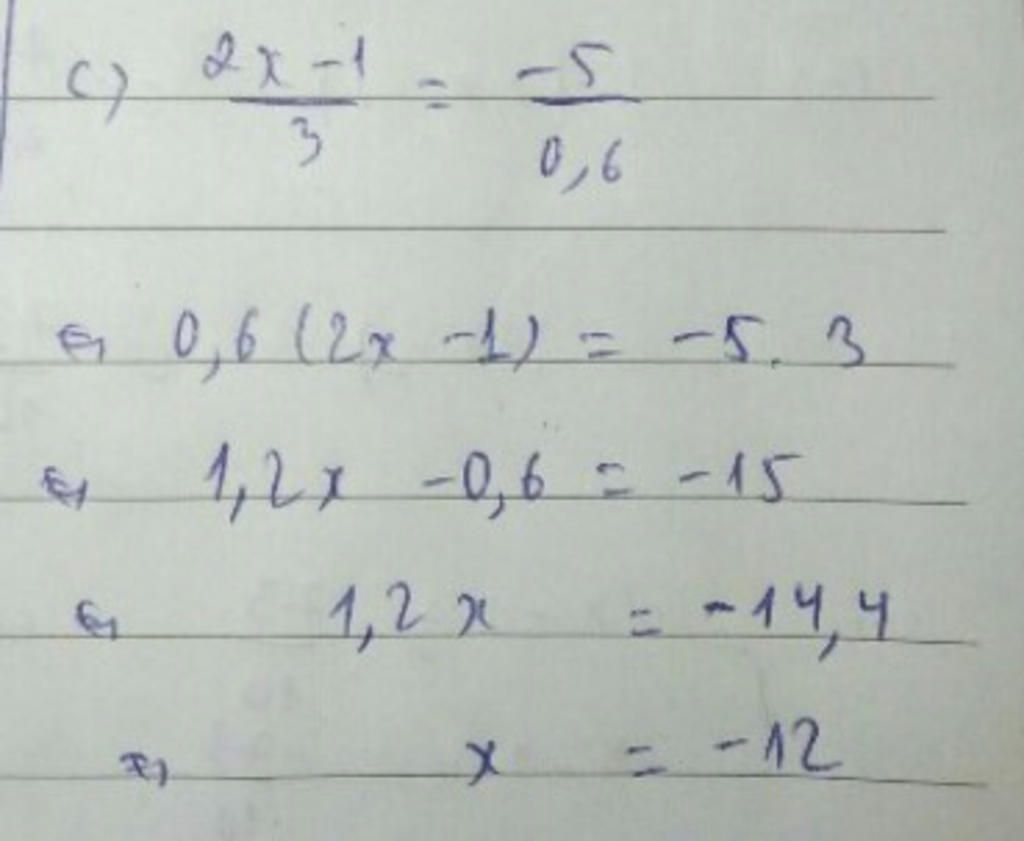 c) (2x - 1)/3 = -5/0,6
⇔ 0,6 (2x - 1) = -5. 3
⇔ 1,2x - 0,6 = -15
⇔ 1,2 x = -14,4
⇔ x = -12